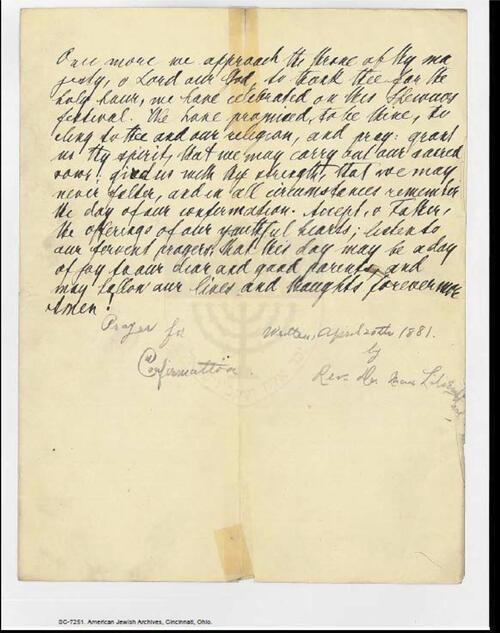 Once more we approach the throne of thy ma
jesty, o Lord our God, to thank thee for the
holy hour, we have celebrated on this Shevuos
festival. We have promised, to be thine, to
cling to thee and our religion, and pray: grant
us thy spirit, that we may carry out our sacred
vows! gird us with thy strength, that we may
never falter, and in all circumstances remember
the day of our confirmation. Accept, o Father,
the offerings of our youthful hearts; listen to
our fervent prayers, that this day may be a day
of joy to our dear and good parents, and
may hallow our lives and thoughts forevermore
Amen!
Prayer for
Confirmation.
Written, April 20th 1881.
by
Rev. Dr. Max
SC-7251. American Jewish Archives, Cincinnati, Ohio.